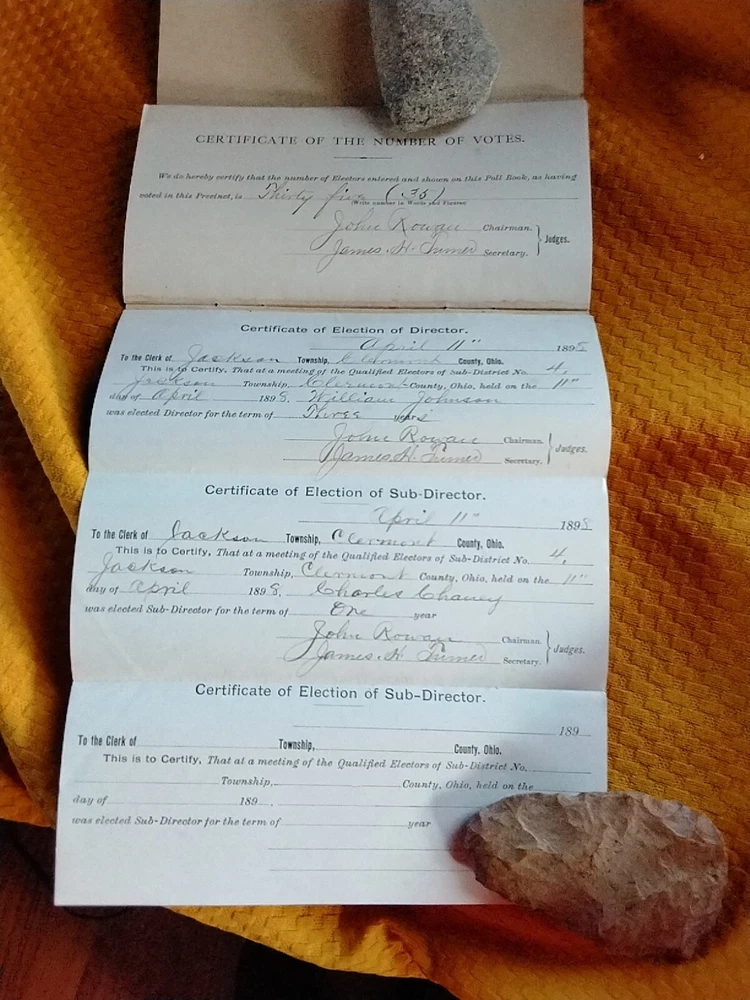 CERTIFICATE OF THE NUMBER OF VOTES.
We do hereby certify that the number of Electors entered and shown on this Poll Book, as having
voted in this Precinct, is Thirty five (35)
(Write number in Words and Figures)
John Rowan Chairman.
James H. Turner Secretary. Judges.
Certificate of Election of Director.
April 11" 1898
To the Clerk of Jackson Township, Clermont County, Ohio.
This is to Certify, That at a meeting of the Qualified Electors of Sub-District No. 4,
Jackson Township, Clermont County, Ohio, held on the 11"
day of April 1898, William Johnson
was elected Director for the term of Three years
John Rowan Chairman.
James H. Turner Secretary. Judges.
Certificate of Election of Sub-Director.
April 11" 1898
To the Clerk of Jackson Township, Clermont County, Ohio.
This is to Certify, That at a meeting of the Qualified Electors of Sub-District No. 4,
Jackson Township, Clermont County, Ohio, held on the 11"
day of April 1898, Charles Chaney
was elected Sub-Director for the term of One year
John Rowan Chairman.
James H. Turner Secretary. Judges.
Certificate of Election of Sub-Director.
189
To the Clerk of Township, County, Ohio.
This is to Certify, That at a meeting of the Qualified Electors of Sub-District No.
Township, County, Ohio, held on the
day of 189
was elected Sub-Director for the term of year